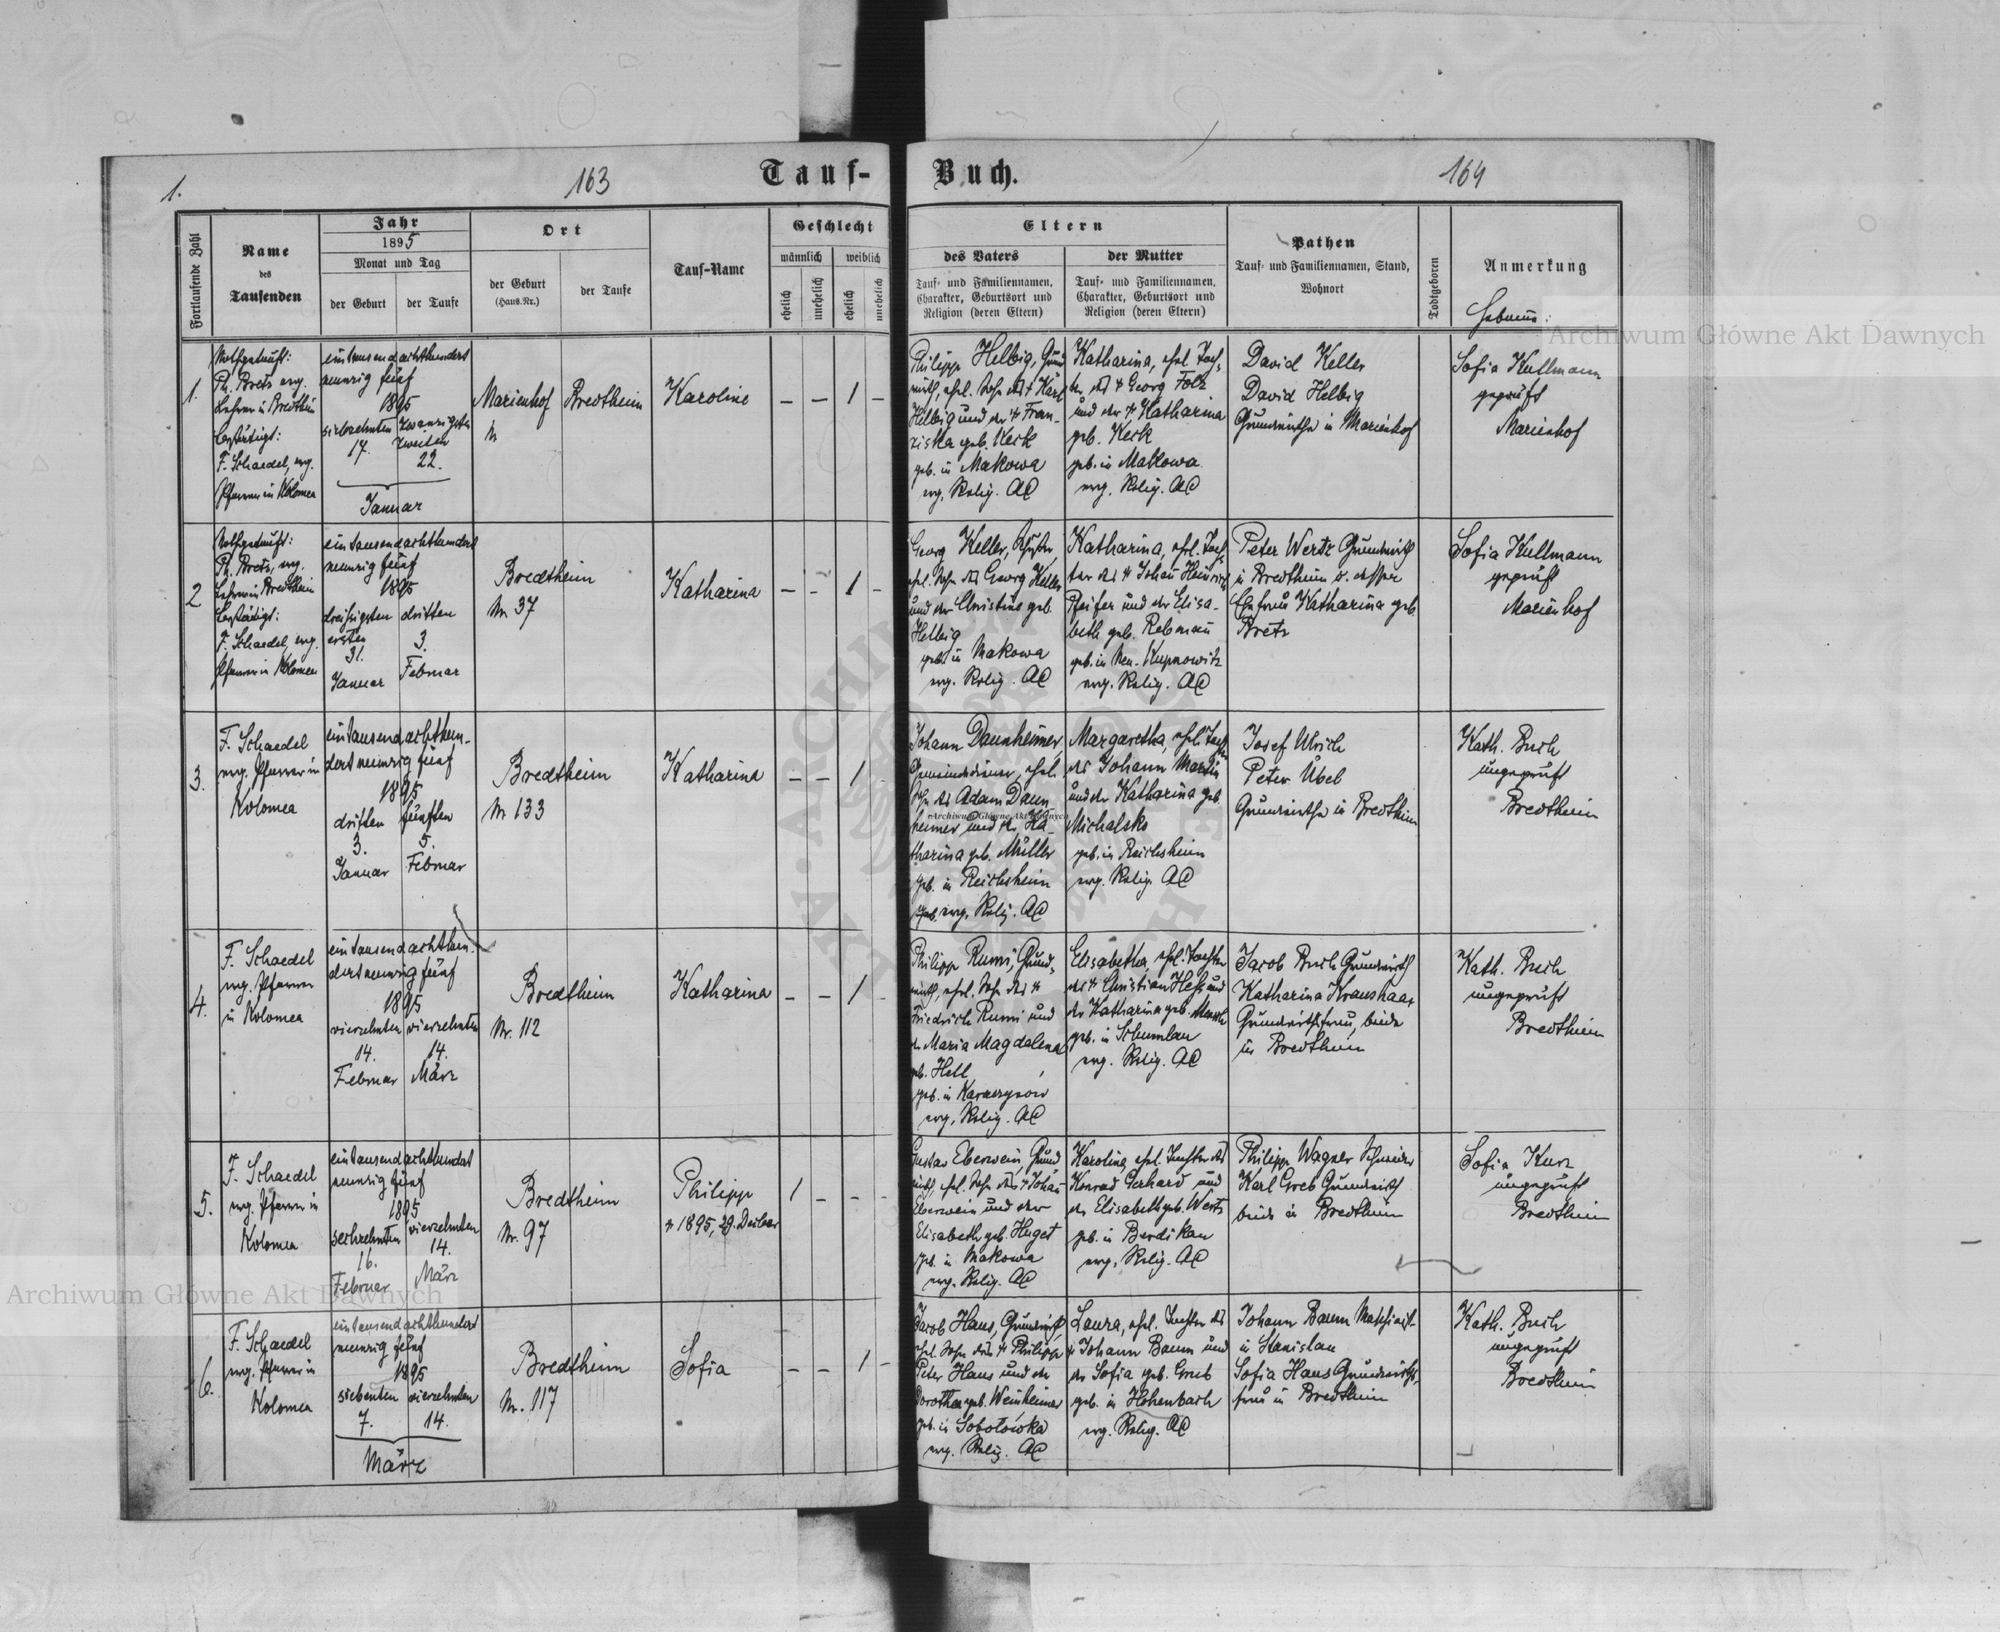 1.
163
Tauf-
Buch.
164
Fortlaufende Zahl
Name
des
Taufenden
Jahr
1895
Monat und Tag
der Geburt
der Taufe
Ort
der Geburt
(Haus-Nr.)
der Taufe
Tauf-Name
Geschlecht
männlich
weiblich
ehelich
unehelich
ehelich
unehelich
Eltern
des Vaters
Tauf- und Familiennamen,
Charakter, Geburtsort und
Religion (deren Eltern)
der Mutter
Tauf- und Familiennamen,
Charakter, Geburtsort und
Religion (deren Eltern)
Pathen
Tauf- und Familiennamen, Stand,
Wohnort
Todtgeboren
Anmerkung
Hebamme:
1.
Nothgetauft:
Ph. Bretz evg.
Lehrer in Bredtheim
bestätigt:
F. Schaedel, evg.
Pfarrer in Kolomea
eintausendachthundert
neunzig fünf
1895
siebzehnten
17.
zwanzigsten
zweiten
22.
Januar
Marienhof
Nr
Bredtheim
Karoline
– – 1 –
Philipp Helbig, Grund-
wirth, ehel. Sohn des † Karl
Helbig und der † Fran-
ziska geb. Kerk
geb. in Makowa
evg. Relig. AC
Katharina, ehel. Toch-
ter des † Georg Folz
und der † Katharina
geb. Kerk
geb. in Makowa
evg. Relig. AC
David Keller
David Helbig
Grundwirthe in Marienhof
Sofia Kullmann
geprüft
Marienhof
2
Nothgetauft:
Ph. Bretz, evg.
Lehrer in Bredtheim
bestätigt:
F. Schaedel, evg.
Pfarrer in Kolomea
eintausendachthundert
neunzig fünf
1895
dreißigsten
ersten
31.
Januar
dritten
3.
Februar
Bredtheim
Nr 37
Katharina
– – 1 –
Georg Keller,
ehel. Sohn des Georg Keller
und der Christine geb.
Helbig
geb. in Makowa
evg. Relig. AC
Katharina, ehel. Toch-
ter des † Johan Heinrich
Pfeifer und der Elisa-
beth geb. Rebman
geb. in Neu-Kupnowitz
evg. Relig. AC
Peter Wertz Grundwirth
in Bredtheim u. dessen
Ehefrau Katharina geb.
Bretz
Sofia Kullmann
geprüft
Marienhof
3.
F. Schaedel
evg. Pfarrer in
Kolomea
eintausendachthun-
dertneunzig fünf
1895
dritten
3.
Januar
fünften
5.
Februar
Bredtheim
Nr 133
Katharina
– – 1 –
Johann Dannheimer
Gemeindediener, ehel.
Sohn des Adam Dann-
heimer und der Ka-
tharina geb. Müller
geb. in Reichsheim
evg. Relig. AC
Margaretha, ehel. Tochter
des Johann Martin
und der Katharina geb.
Michalsko
geb. in Reichsheim
evg. Relig. AC
Josef Ulrich
Peter Übel
Grundwirthe in Bredtheim
Kath. Buch
ungeprüft
Bredtheim
4.
F. Schaedel
evg. Pfarrer
in Kolomea
eintausendachthun-
dertneunzig fünf
1895
vierzehnten
14.
Februar
vierzehnten
14.
März
Bredtheim
Nr. 112
Katharina
– – 1 –
Philipp Rumi, Grund-
wirth, ehel. Sohn des †
Friedrich Rumi und
der Maria Magdalena
geb. Hell
geb. in
evg. Relig. AC
Elisabetha, ehel. Tochter
des † Christian Heß und
der Katharina geb.
geb. in Schumlau
evg. Relig. AC
Jacob Buch Grundwirth
Katharina Kraushaar
Grundwirthsfrau, beide
in Bredtheim
Kath. Buch
ungeprüft
Bredtheim
5.
F. Schaedel
evg. Pfarrer in
Kolomea
eintausendachthundert
neunzig fünf
1895
sechzehnten
16.
Februar
vierzehnten
14.
März
Bredtheim
Nr. 97
Philipp
† 1895, 29. Dezber
1 – – –
Gustav Eberwein, Grund-
wirth, ehel. Sohn des † Johan
Eberwein und der
Elisabeth geb. Huget
geb. in Makowa
evg. Relig. AC
Karolina, ehel. Tochter des
Konrad Gerhard und
der Elisabeth geb. Wertz
geb. in Berdikau
evg. Relig. AC
Philipp Wagner Schneider
Karl Greb Grundwirth
beide in Bredtheim
Sofia Kurz
ungeprüft
Bredtheim
6.
F. Schaedel
evg. Pfarrer in
Kolomea
eintausendachthundert
neunzig fünf
1895
siebenten
7.
vierzehnten
14.
März
Bredtheim
Nr. 117
Sofia
– – 1 –
Jacob Haus, Grundwirth
ehel. Sohn des † Philipp
Peter Haus und der
Dorothea geb. Weinheimer
geb. in Sobolówka
evg. Relig. AC
Laura, ehel. Tochter des
† Johann Baum und
der Sofia geb. Greb
geb. in Hohenbach
evg. Relig. AC
Johann Baum Maschinist
in Stanislau
Sofia Haus Grundwirths-
frau in Bredtheim
Kath. Buch
ungeprüft
Bredtheim
Archiwum Główne Akt Dawnych
Archiwum Główne Akt Dawnych
Archiwum Główne Akt Dawnych